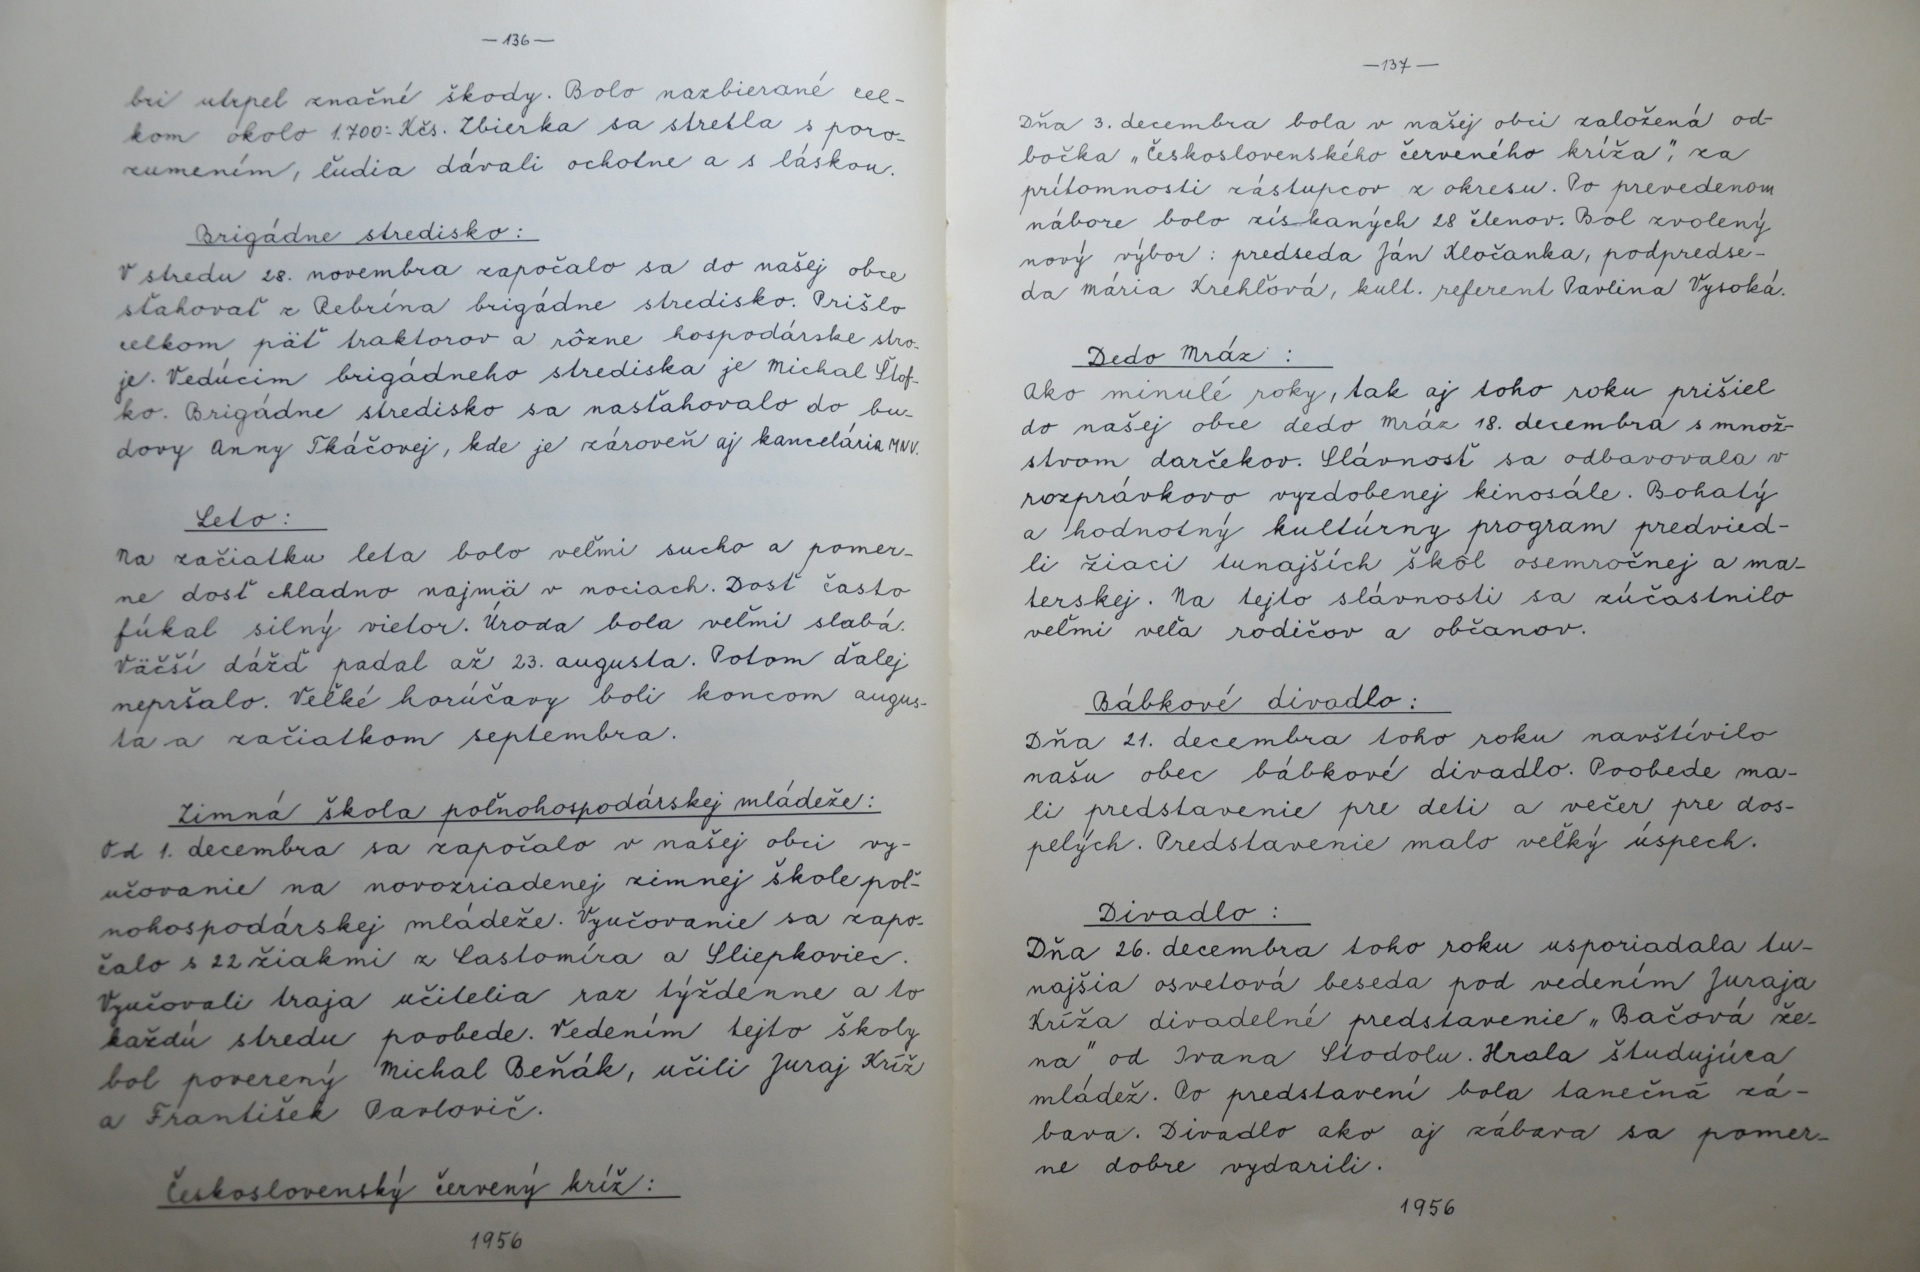 —136—
bri utrpel značné škody. Bolo nazbierané cel-
kom okolo 1.700:- Kčs. Zbierka sa stretla s poro-
zumením, ľudia dávali ochotne a s láskou.
Brigádne stredisko:
V stredu 28. novembra započalo sa do našej obce
sťahovať z Rebrína brigádne stredisko. Prišlo
celkom päť traktorov a rôzne hospodárske stro-
je. Vedúcim brigádneho strediska je Michal Štof-
ko. Brigádne stredisko sa nasťahovalo do bu-
dovy Anny Tkáčovej, kde je zároveň aj kancelária MNV.
Leto:
Na začiatku leta bolo veľmi sucho a pomer-
ne dosť chladno najmä v nociach. Dosť často
fúkal silný vietor. Úroda bola veľmi slabá.
Väčší dážď padal až 23. augusta. Potom ďalej
nepršalo. Veľké horúčavy boli koncom augus-
ta a začiatkom septembra.
Zimná škola poľnohospodárskej mládeže:
Od 1. decembra sa započalo v našej obci vy-
učovanie na novozriadenej zimnej škole poľ-
nohospodárskej mládeže. Vyučovanie sa zapo-
čalo s 22 žiakmi z Lastomíra a Sliepkoviec.
Vyučovali traja učitelia raz týždenne a to
každú stredu poobede. Vedením tejto školy
bol poverený Michal Beňák, učili Juraj Kríž
a František Pavlovič.
Československý červený kríž:
1956
—137—
Dňa 3. decembra bola v našej obci založená od-
bočka „Československého červeného kríža", za
prítomnosti zástupcov z okresu. Po prevedenom
nábore bolo získaných 28 členov. Bol zvolený
nový výbor: predseda Ján Kločanka, podpredse-
da Mária Krehľová, kult. referent Pavlina Vysoká.
Dedo Mráz:
Ako minulé roky, tak aj toho roku prišiel
do našej obce dedo Mráz 18. decembra s množ-
stvom darčekov. Slávnosť sa odbavovala v
rozprávkovo vyzdobenej kinosále. Bohatý
a hodnotný kultúrny program predvied-
li žiaci tunajších škôl osemročnej a ma-
terskej. Na tejto slávnosti sa zúčastnilo
veľmi veľa rodičov a občanov.
Bábkové divadlo:
Dňa 21. decembra toho roku navštívilo
našu obec bábkové divadlo. Poobede ma-
li predstavenie pre deti a večer pre dos-
pelých. Predstavenie malo veľký úspech.
Divadlo:
Dňa 26. decembra toho roku usporiadala tu-
najšia osvetová beseda pod vedením Juraja
Kríža divadelné predstavenie „Bačová že-
na" od Ivana Stodolu. Hrala študujúca
mládež. Po predstavení bola tanečná zá-
bava. Divadlo ako aj zábava sa pomer-
ne dobre vydarili.
1956